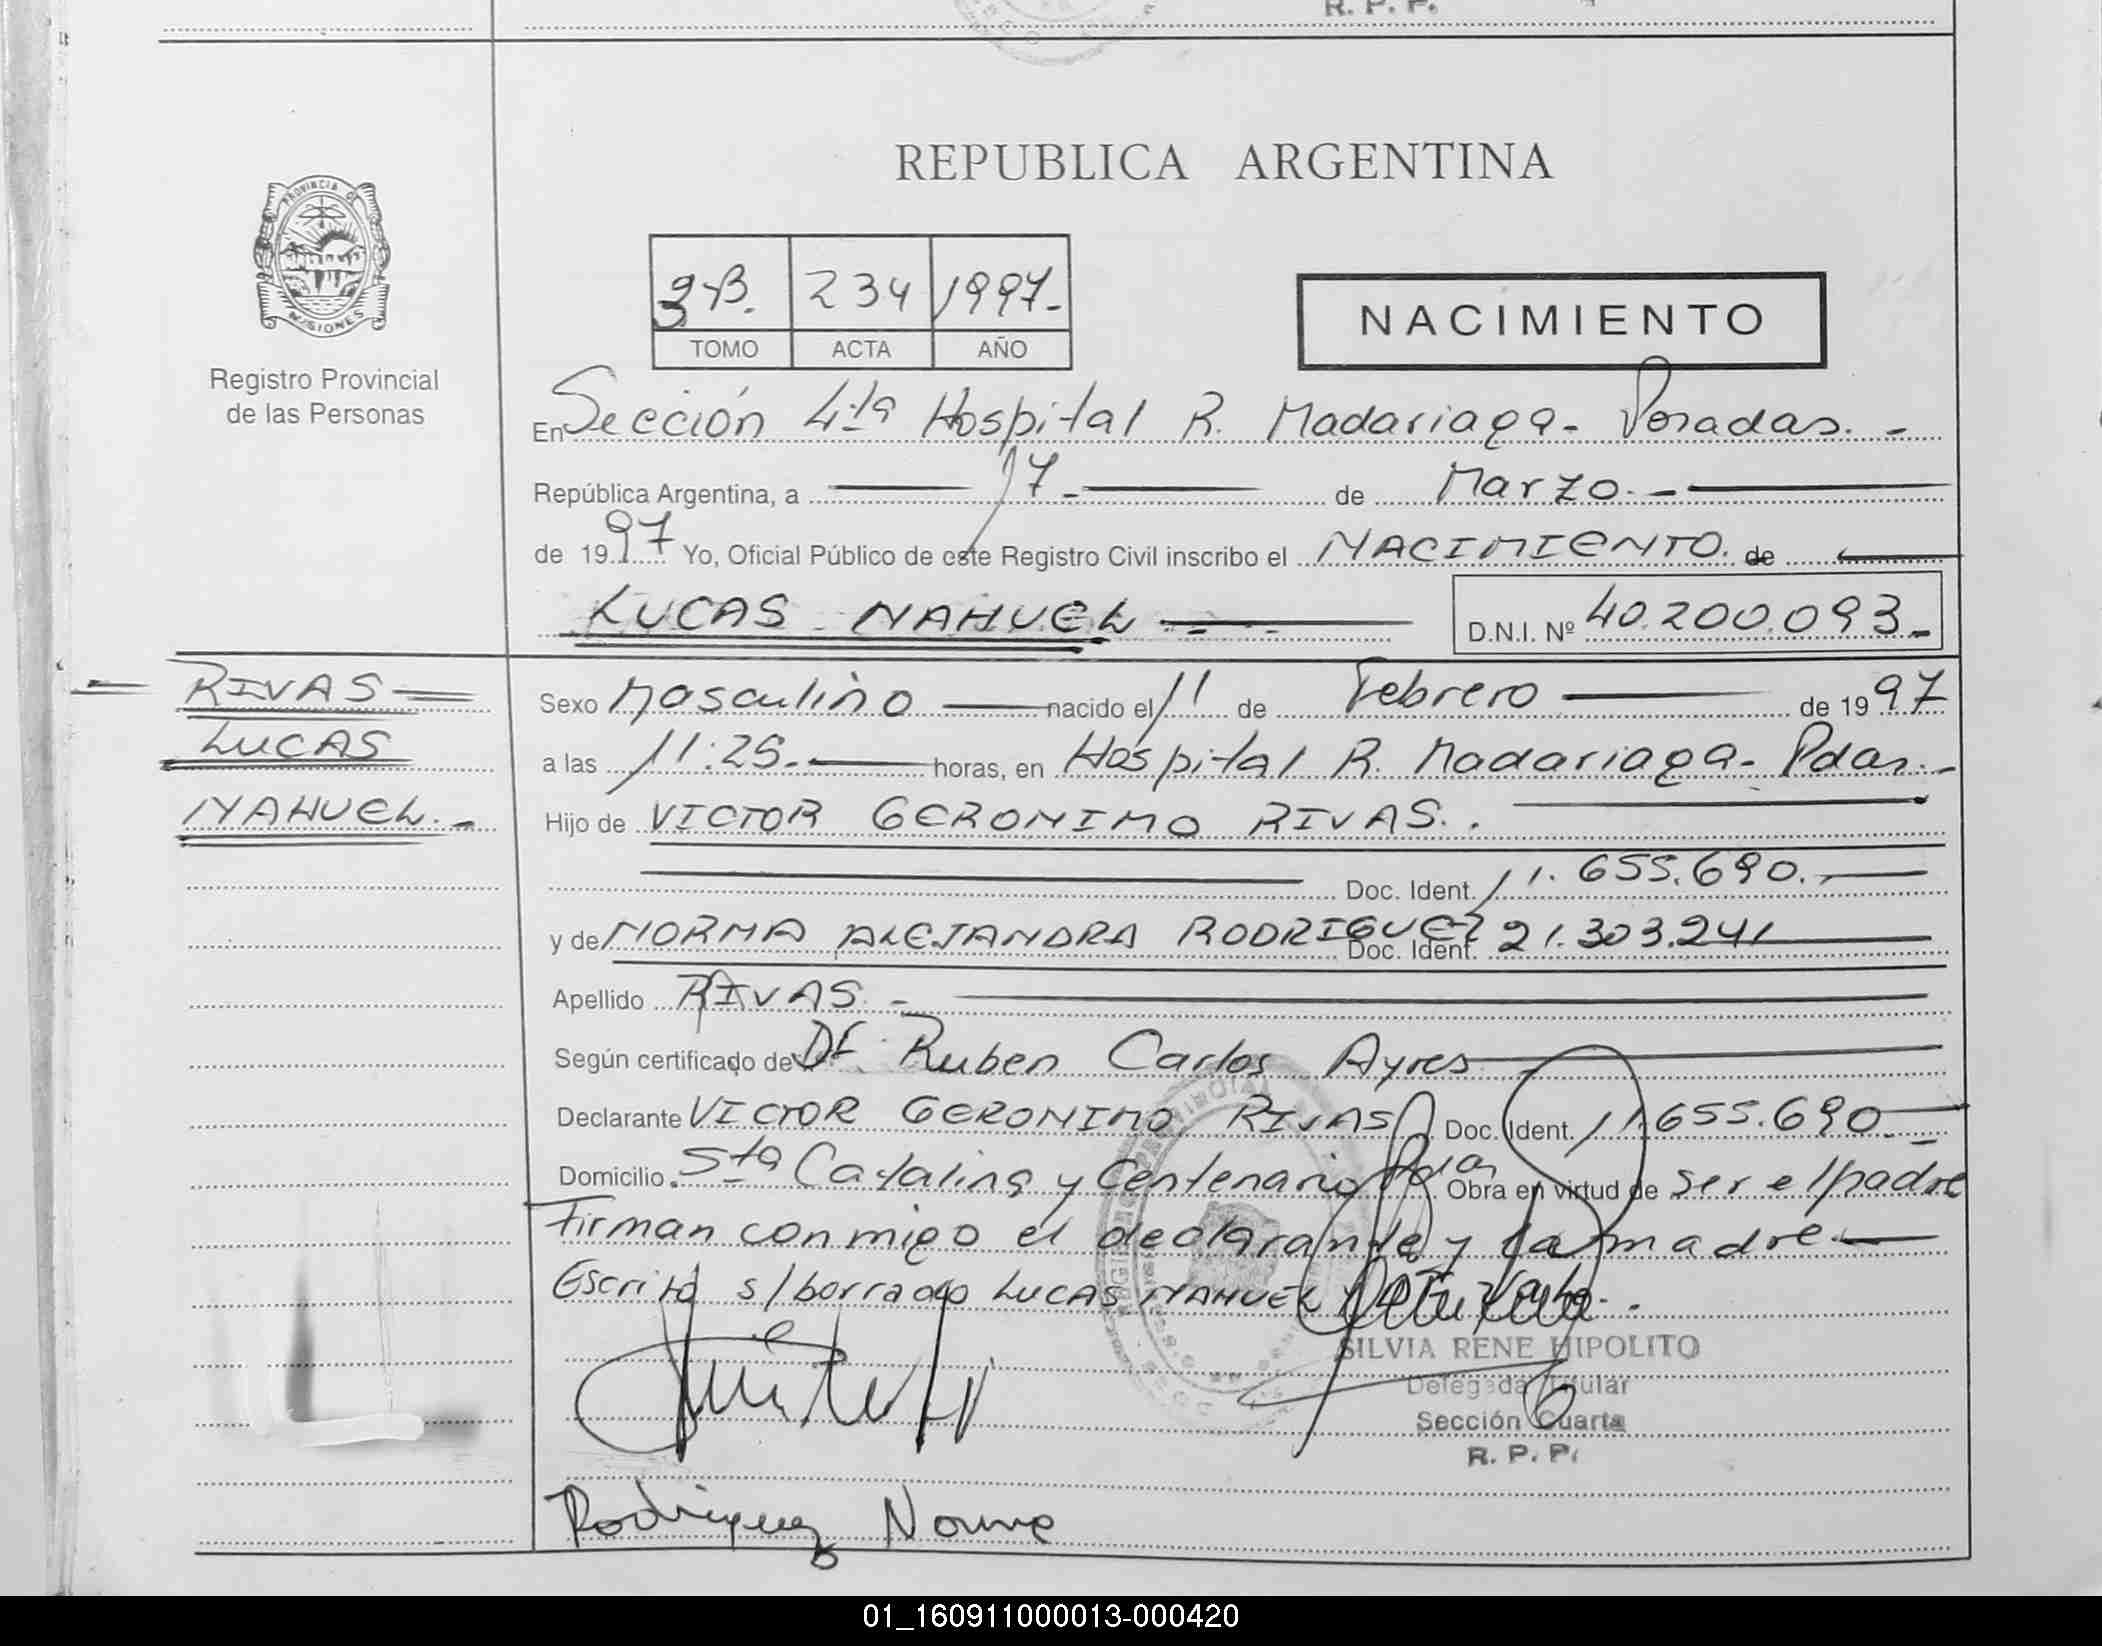 R. P. P.
REPUBLICA ARGENTINA
PROVINCIA DE
MISIONES
Registro Provincial
de las Personas
3-B. 234 1997.-
TOMO ACTA AÑO
NACIMIENTO
En Sección 4ta Hospital R. Madariaga - Posadas. -
República Argentina, a 17 - de Marzo. -
de 1997 Yo, Oficial Público de este Registro Civil inscribo el NACIMIENTO. de
LUCAS NAHUEL
D.N.I. Nº 40.200.093 -
RIVAS
LUCAS
NAHUEL. -
Sexo Masculino nacido el 11 de Febrero de 1997
a las 11:25. horas, en Hospital R. Madariaga - Pdas. -
Hijo de VICTOR GERONIMO RIVAS. .
Doc. Ident. 11.655.690.
y de NORMA ALEJANDRA RODRIGUEZ Doc. Ident. 21.303.241
Apellido RIVAS. -
Según certificado de Dr. Ruben Carlos Ayres
Declarante VICTOR GERONIMO RIVAS Doc. Ident. 11.655.690. -
Domicilio. Sta Catalina y Centenario Pdas Obra en virtud de ser el padre
Firman conmigo el declarante y la madre. -
Escrito s/borrado LUCAS NAHUEL y Dr. Vale. .
SILVIA RENE HIPOLITO
Delegada Titular
Sección Cuarta
R. P. P.
Rodriguez Norma
01_160911000013-000420